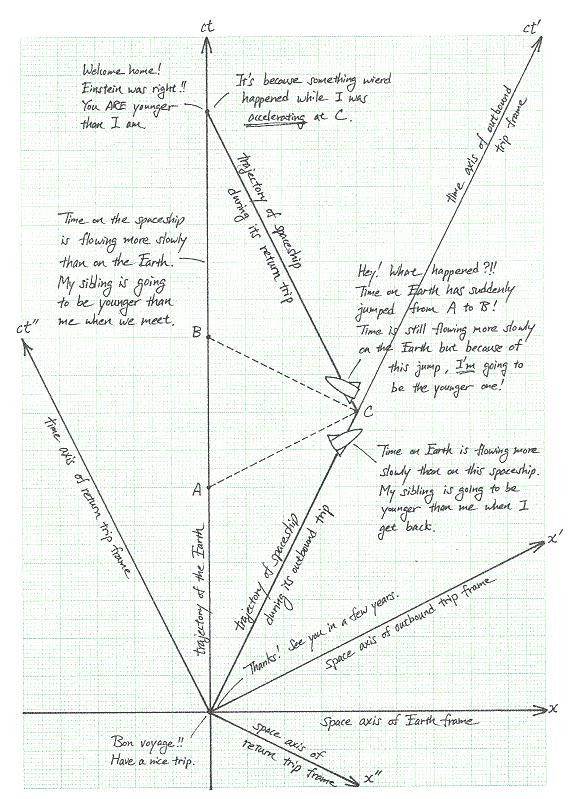 ct
ct'
Welcome home!
Einstein was right!!
You ARE younger
than I am.
It's because something wierd
happened while I was
accelerating at C.
time axis of outbound
trip frame
trajectory of spaceship
during its return trip
Time on the spaceship
is flowing more slowly
than on the Earth.
My sibling is going
to be younger than
me when we meet.
Hey! What happened ?!!
Time on Earth has suddenly
jumped from A to B!
Time is still flowing more slowly
on the Earth but because of
this jump, I'm going to
be the younger one!
ct"
B
C
time axis of return trip frame
A
Time on Earth is flowing more
slowly than on this spaceship.
My sibling is going to be
younger than me when I
get back.
trajectory of the Earth
trajectory of spaceship
during its outbound trip
x'
Thanks! See you in a few years.
space axis of outbound trip frame
x
space axis of Earth frame
Bon voyage!!
Have a nice trip.
space axis of
return trip frame
x"